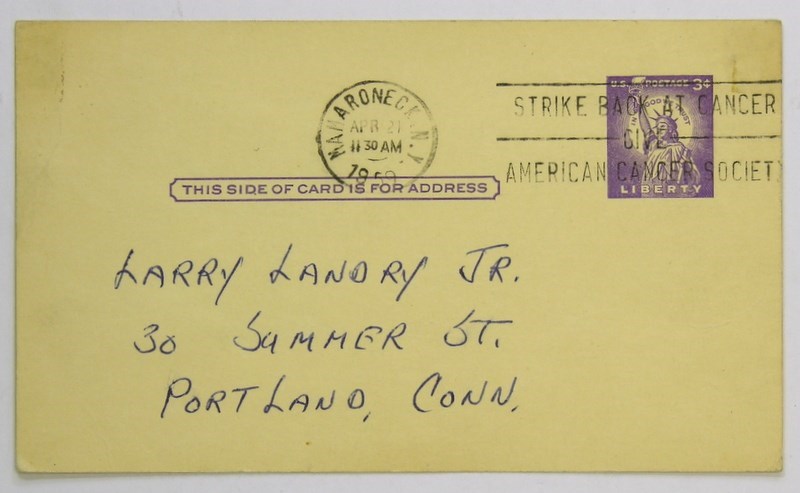 MAMARONECK, N.Y.
APR 21
11 30 AM
1959
U.S. POSTAGE 3¢
IN GOD WE TRUST
LIBERTY
STRIKE BACK AT CANCER
GIVE
AMERICAN CANCER SOCIETY
THIS SIDE OF CARD IS FOR ADDRESS
LARRY LANDRY JR.
30 SUMMER ST.
PORTLAND, CONN.